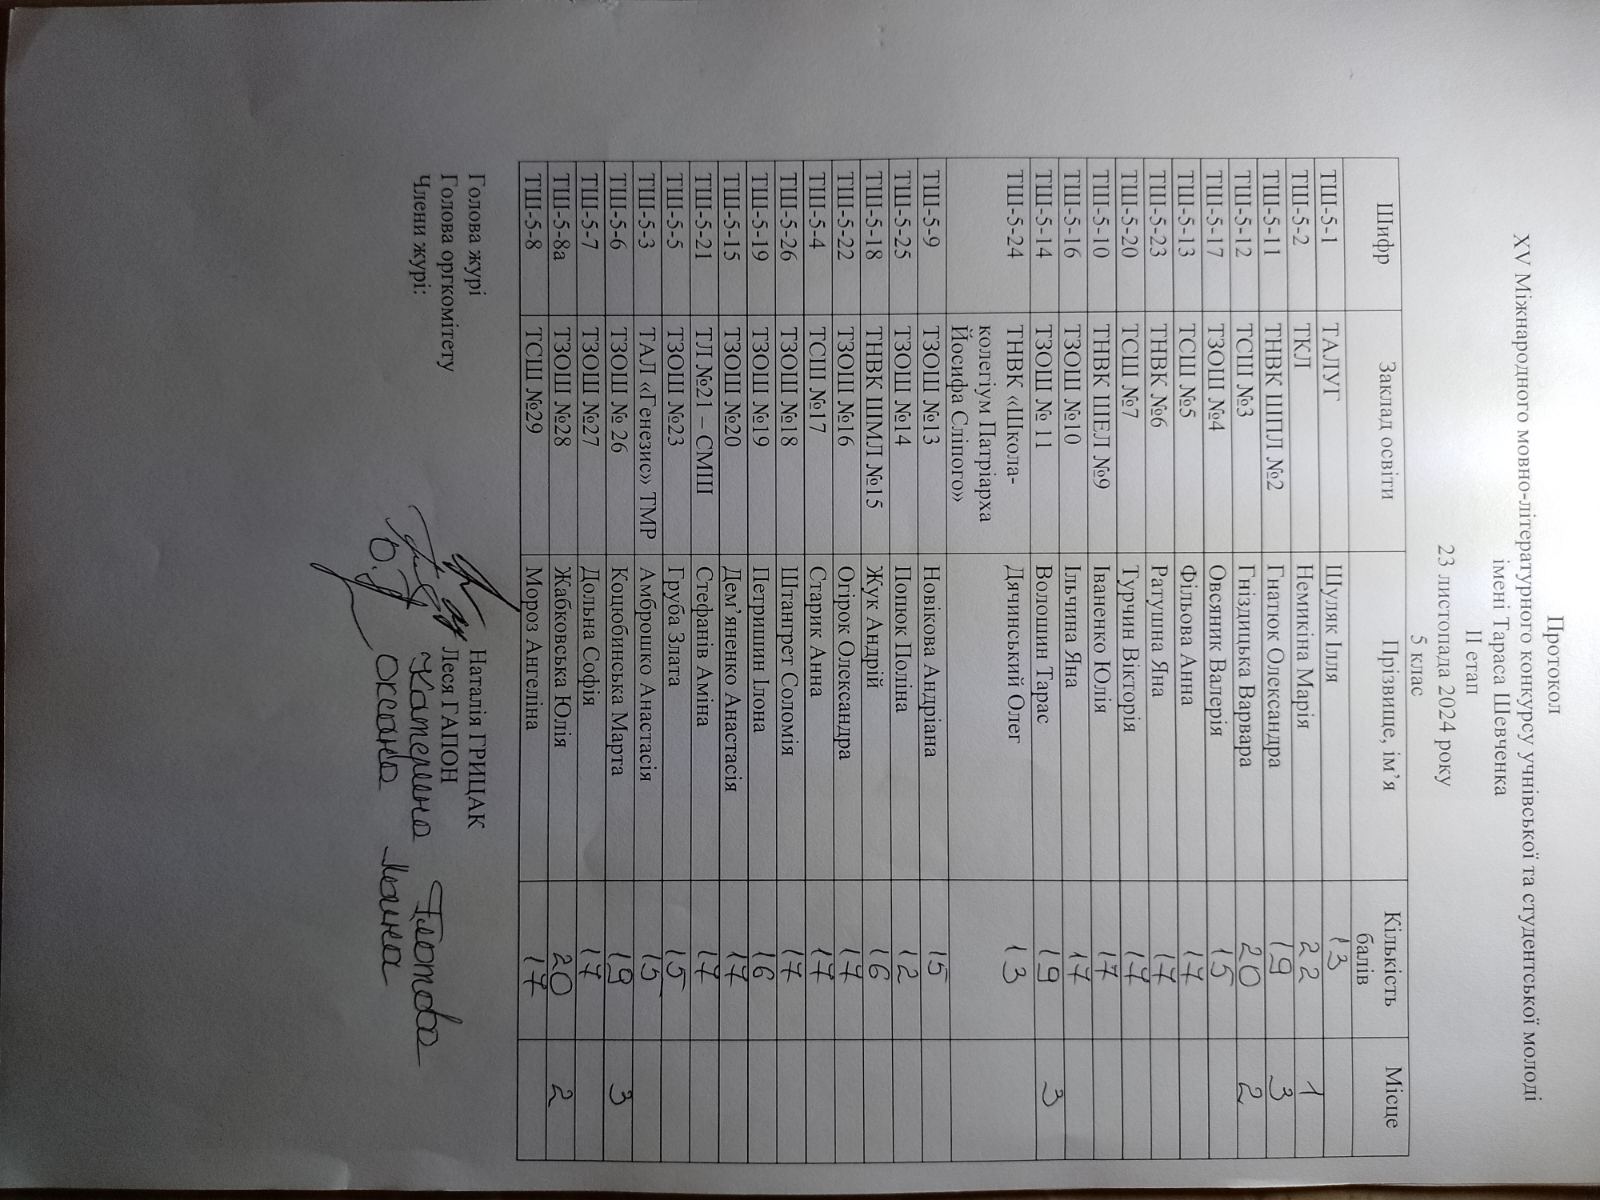 Протокол
XV Міжнародного мовно-літературного конкурсу учнівської та студентської молоді
імені Тараса Шевченка
ІІ етап
23 листопада 2024 року
5 клас
Шифр Заклад освіти Прізвище, ім’я Кількість балів Місце
ТШ-5-1 ТАЛУГ Шуляк Ілля 13
ТШ-5-2 ТКЛ Немикіна Марія 22 1
ТШ-5-11 ТНВК ШПЛ №2 Гнатюк Олександра 19 3
ТШ-5-12 ТСШ №3 Гніздицька Варвара 20 2
ТШ-5-17 ТЗОШ №4 Овсяник Валерія 15
ТШ-5-13 ТСШ №5 Фільова Анна 17
ТШ-5-23 ТНВК №6 Ратушна Яна 17
ТШ-5-20 ТСШ №7 Турчин Вікторія 17
ТШ-5-10 ТНВК ШЕЛ №9 Іваненко Юлія 17
ТШ-5-16 ТЗОШ №10 Ільчина Яна 17
ТШ-5-14 ТЗОШ № 11 Волошин Тарас 19 3
ТШ-5-24 ТНВК «Школа- Дячинський Олег 13
колегіум Патріарха
Йосифа Сліпого»
ТШ-5-9 ТЗОШ №13 Новікова Андріана 15
ТШ-5-25 ТЗОШ №14 Попюк Поліна 12
ТШ-5-18 ТНВК ШМЛ №15 Жук Андрій 16
ТШ-5-22 ТЗОШ №16 Огірок Олександра 17
ТШ-5-4 ТСШ №17 Старик Анна 17
ТШ-5-26 ТЗОШ №18 Штангрет Соломія 17
ТШ-5-19 ТЗОШ №19 Петришин Ілона 16
ТШ-5-15 ТЗОШ №20 Дем’яненко Анастасія 17
ТШ-5-21 ТЛ №21 – СМШ Стефанів Аміна 17
ТШ-5-5 ТЗОШ №23 Груба Злата 15
ТШ-5-3 ТАЛ «Генезис» ТМР Амброшко Анастасія 15
ТШ-5-6 ТЗОШ № 26 Коцюбинська Марта 19 3
ТШ-5-7 ТЗОШ №27 Дольна Софія 17
ТШ-5-8а ТЗОШ №28 Жабковська Юлія 20 2
ТШ-5-8 ТСШ №29 Мороз Ангеліна 17
Голова журі Наталія ГРИЦАК
Голова оргкомітету Леся ГАПОН
Члени журі: Катерина Глотова
Оксана